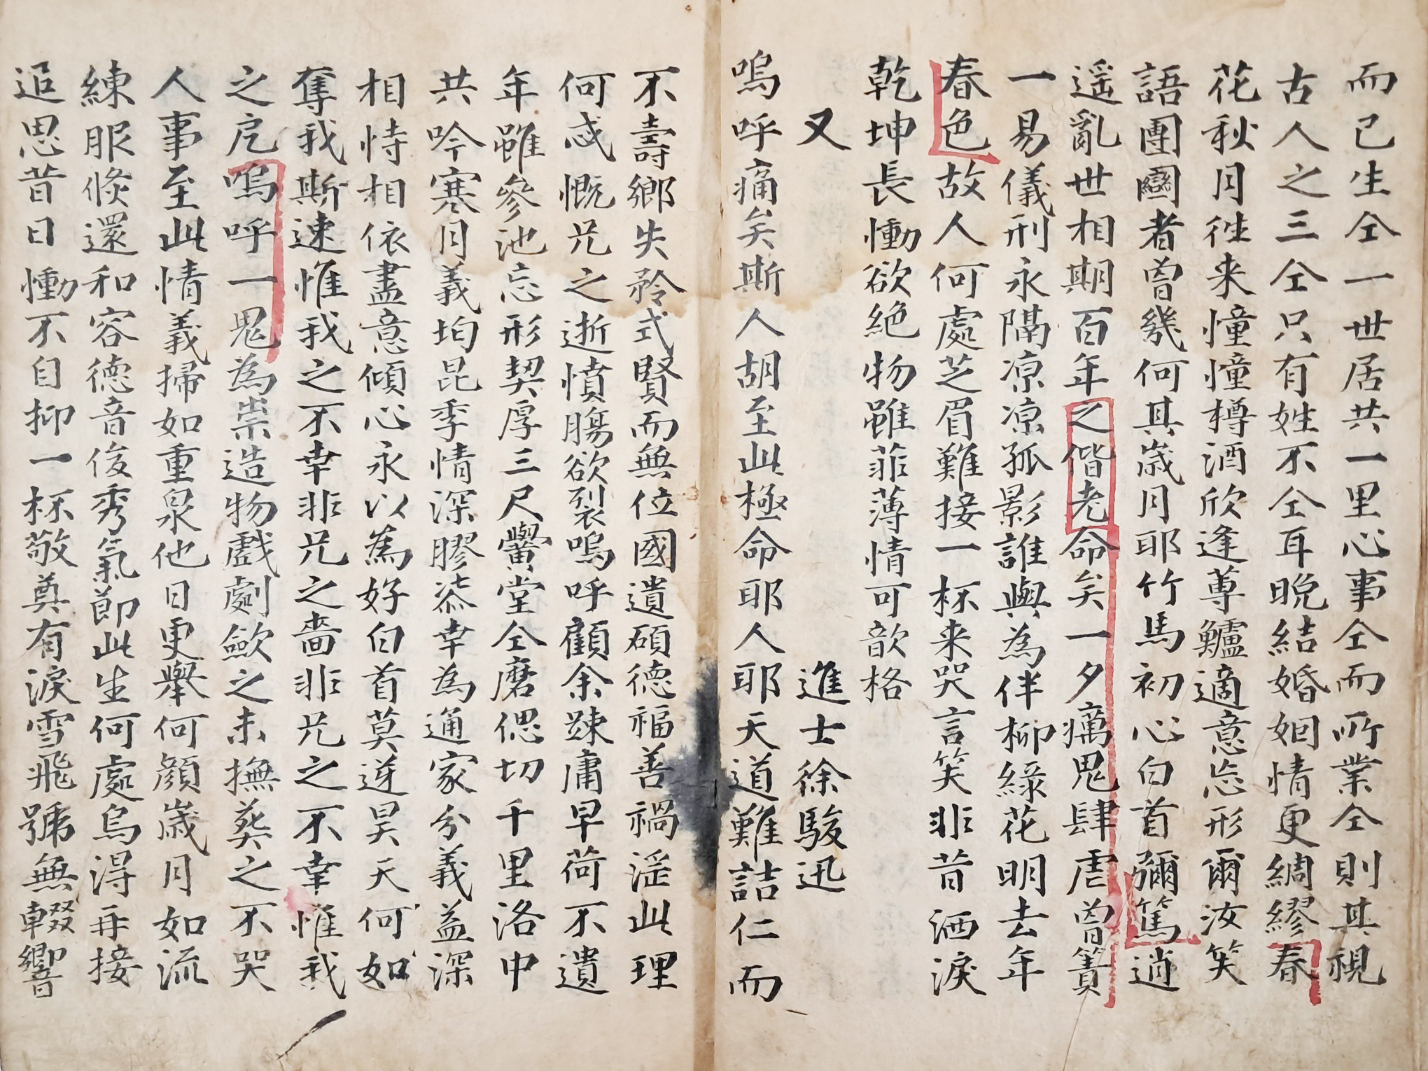 而已生仝一世居共一里心事仝而所業仝則其視
古人之三仝只有姓不仝耳晩結婚姻情更綢繆春
花秋月徃来憧憧樽酒欣逢蓴鱸適意忘形爾汝笑
語團圞者曾幾何其歲月耶竹馬初心白首彌篤逍
遥亂世相期百年之偕老命矣一夕癘鬼肆虐曾簀
一易儀刑永隔凉凉孤影誰與為伴柳綠花明去年
春色故人何處芝眉難接一杯来哭言笑非昔洒淚
乾坤長慟欲絶物雖菲薄情可歆格
又 進士徐駿迅
嗚呼痛矣斯人胡至此極命耶人耶天道難詰仁而
不壽鄉失矜式賢而無位國遺碩德福善禍淫此理
何忒慨兄之逝憤膓欲裂嗚呼顧余踈庸早荷不遺
年雖參池忘形契厚三尺黌堂仝磨偲切千里洛中
共吟寒月義均昆季情深膠漆幸為通家分義益深
相恃相依盡意傾心永以為好白首莫逆昊天何如
奪我斯速惟我之不幸非兄之嗇非兄之不幸惟我
之戹嗚呼一鬼為祟造物戲劇歛之未撫葬之不哭
人事至此情義掃如重泉他日更舉何顔歲月如流
練服倏還和容德音俊秀氣節此生何處烏得再接
追思昔日慟不自抑一杯敬奠有淚雪飛號無輟響